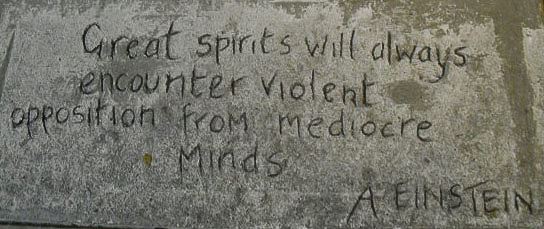 Great spirits will always
encounter violent
opposition from mediocre
Minds
A EINSTEIN